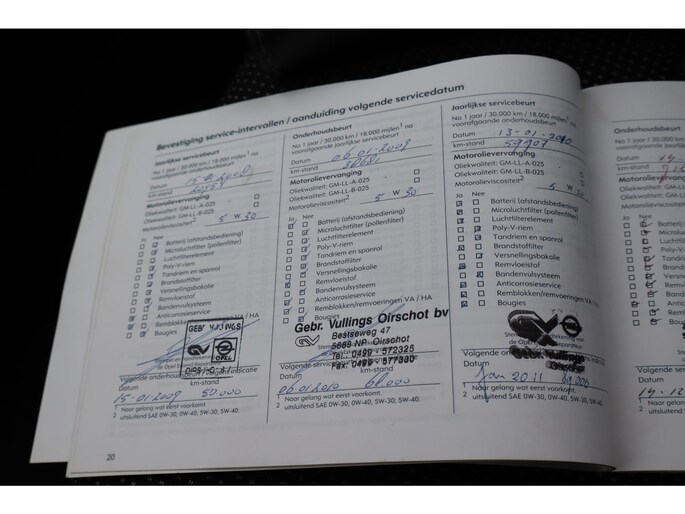 Bevestiging service-intervallen / aanduiding volgende servicedatum
Jaarlijkse servicebeurt
No 1 jaar / 30.000 km / 18.000 mijlen¹ na
voorafgaande onderhoudsbeurt
Datum
km-stand
Motorolievervanging
Oliekwaliteit: GM-LL-A-025
Oliekwaliteit: GM-LL-B-025
Motorolieviscositeit² 5 W 30
Ja Nee
Batterij (afstandsbediening)
Microluchtfilter (pollenfilter)
Luchtfilterelement
Poly-V-riem
Tandriem en spanrol
Brandstoffilter
Versnellingsbakolie
Remvloeistof
Bandenvulsysteem
Anticorrosieservice
Remblokken/remvoeringen VA / HA
Bougies
OPEL
km-stand
Datum
15-01-2009 50000
1 Naar gelang wat eerst voorkomt
2 uitsluitend SAE 0W-30, 0W-40, 5W-30, 5W-40.
20
Onderhoudsbeurt
No 1 jaar / 30.000 km / 18.000 mijlen¹ na
voorafgaande onderhoudsbeurt
Datum
km-stand
Motorolievervanging
Oliekwaliteit: GM-LL-A-025
Oliekwaliteit: GM-LL-B-025
Motorolieviscositeit² 5 W 30
Ja Nee
Batterij (afstandsbediening)
Microluchtfilter (pollenfilter)
Luchtfilterelement
Poly-V-riem
Tandriem en spanrol
Brandstoffilter
Versnellingsbakolie
Remvloeistof
Bandenvulsysteem
Anticorrosieservice
Remblokken/remvoeringen VA / HA
Bougies
Gebr. Vullings Oirschot bv
Bestseweg 47
5688 NP Oirschot
Tel.: 0499 - 572325
Fax: 0499 - 577380
Datum km-stand
06-01-2010
1 Naar gelang wat eerst voorkomt.
2 uitsluitend SAE 0W-30, 0W-40, 5W-30, 5W-40.
Jaarlijkse servicebeurt
No 1 jaar / 30.000 km / 18.000 mijlen¹ na
voorafgaande onderhoudsbeurt
Datum 13-01-2010
km-stand 59907
Motorolievervanging
Oliekwaliteit: GM-LL-A-025
Oliekwaliteit: GM-LL-B-025
Motorolieviscositeit² 5 W 30
Ja Nee
Batterij (afstandsbediening)
Microluchtfilter (pollenfilter)
Luchtfilterelement
Poly-V-riem
Tandriem en spanrol
Brandstoffilter
Versnellingsbakolie
Remvloeistof
Bandenvulsysteem
Anticorrosieservice
Remblokken/remvoeringen VA /
Bougies
Gebr. Vullings
Datum
Jan 2011
1 Naar gelang wat eerst voorkomt.
2 uitsluitend SAE 0W-30, 0W-40, 5W-30, 5W-40.
Onderhoudsbeurt
No 1 jaar / 30.000 km
voorafgaande onderh
Datum
km-stand
Motorolievervanging
Oliekwaliteit: GM-LL
Oliekwaliteit: GM-LL
Ja Nee
Datum